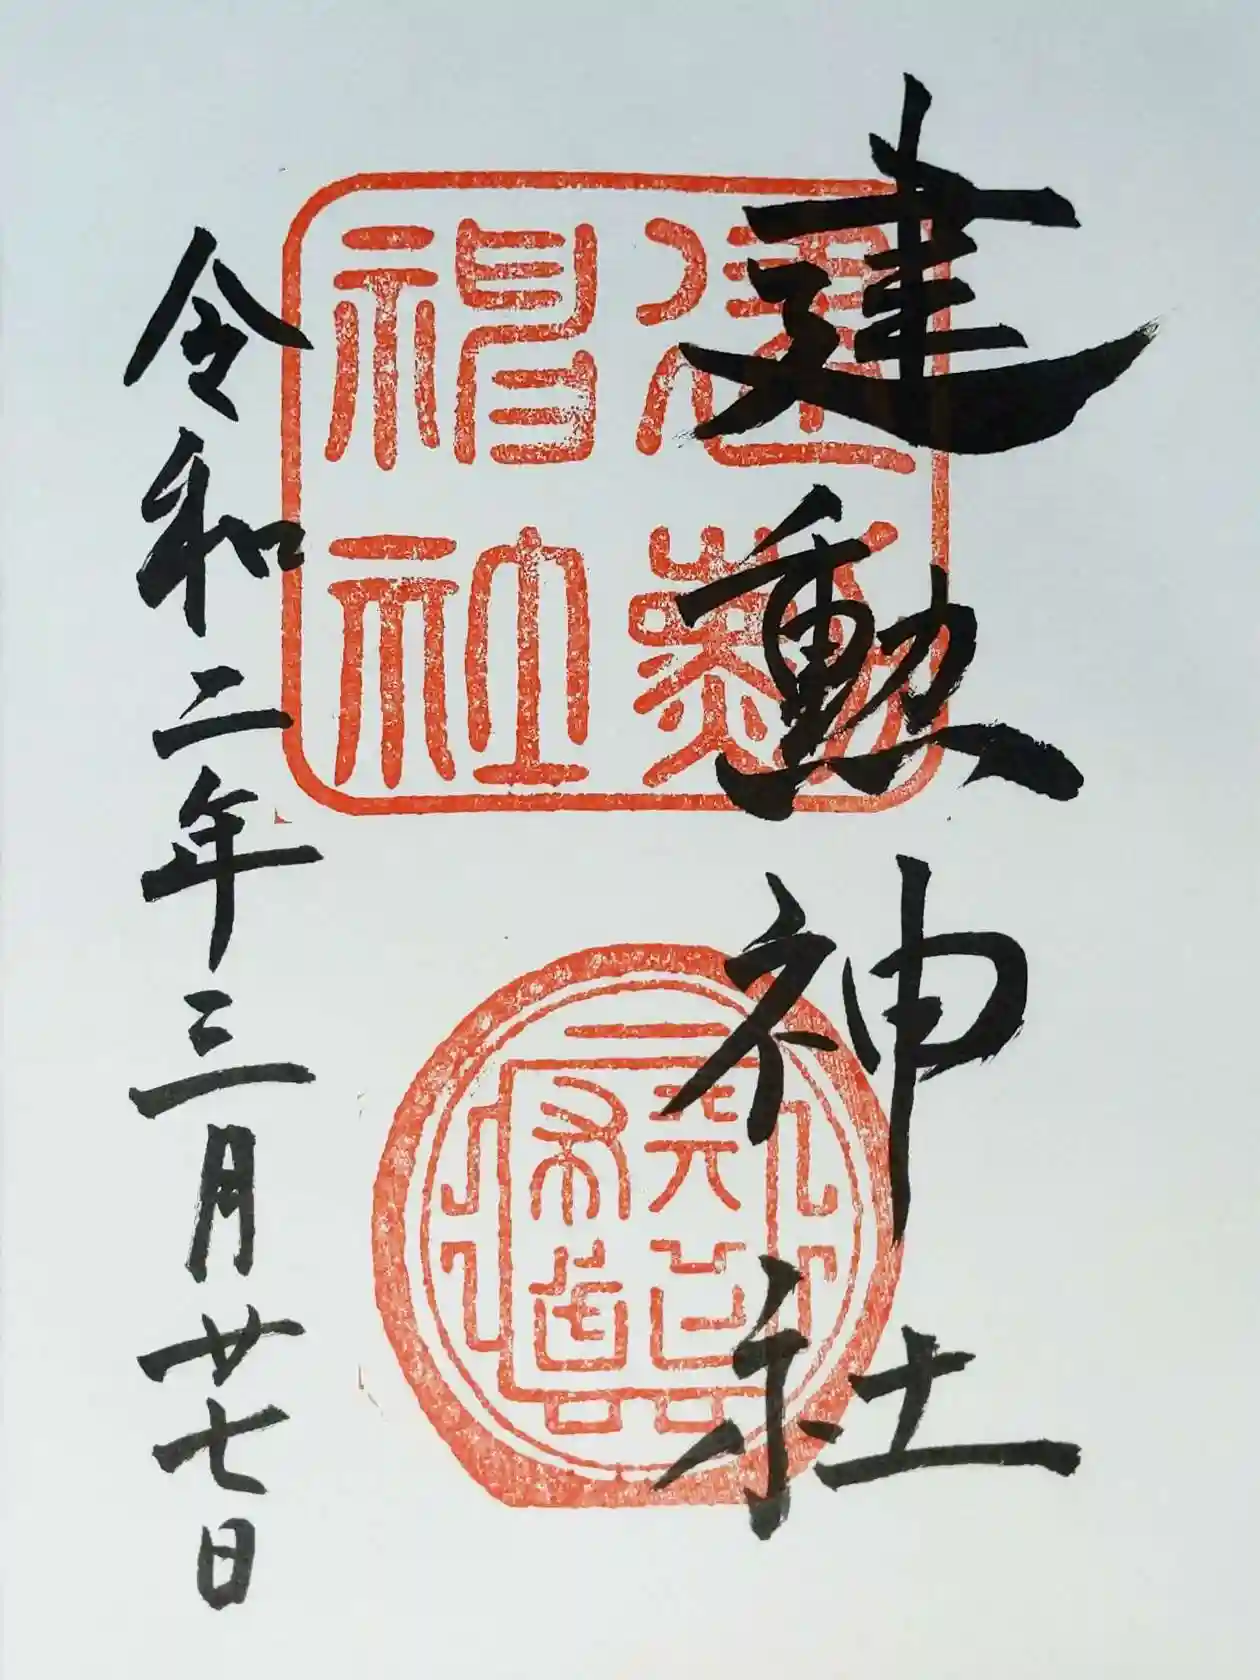 建勲神社
建勲
神社
令和二年三月廿七日